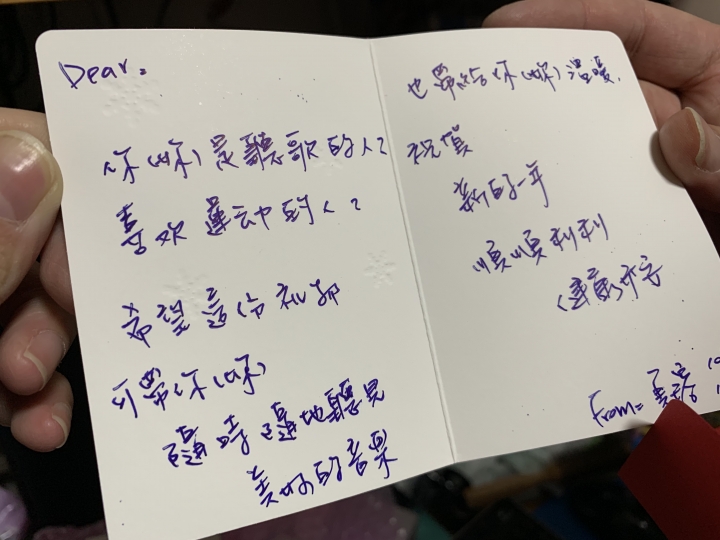 Dear.
你(妳)是聽歌的人?
喜歡運動的人?
希望這份禮物
可帶你(妳)
隨時隨地聽見
美好的音樂
也帶給你(妳)溫暖.
祝賀
新的一年
順順利利
健康平安
From=